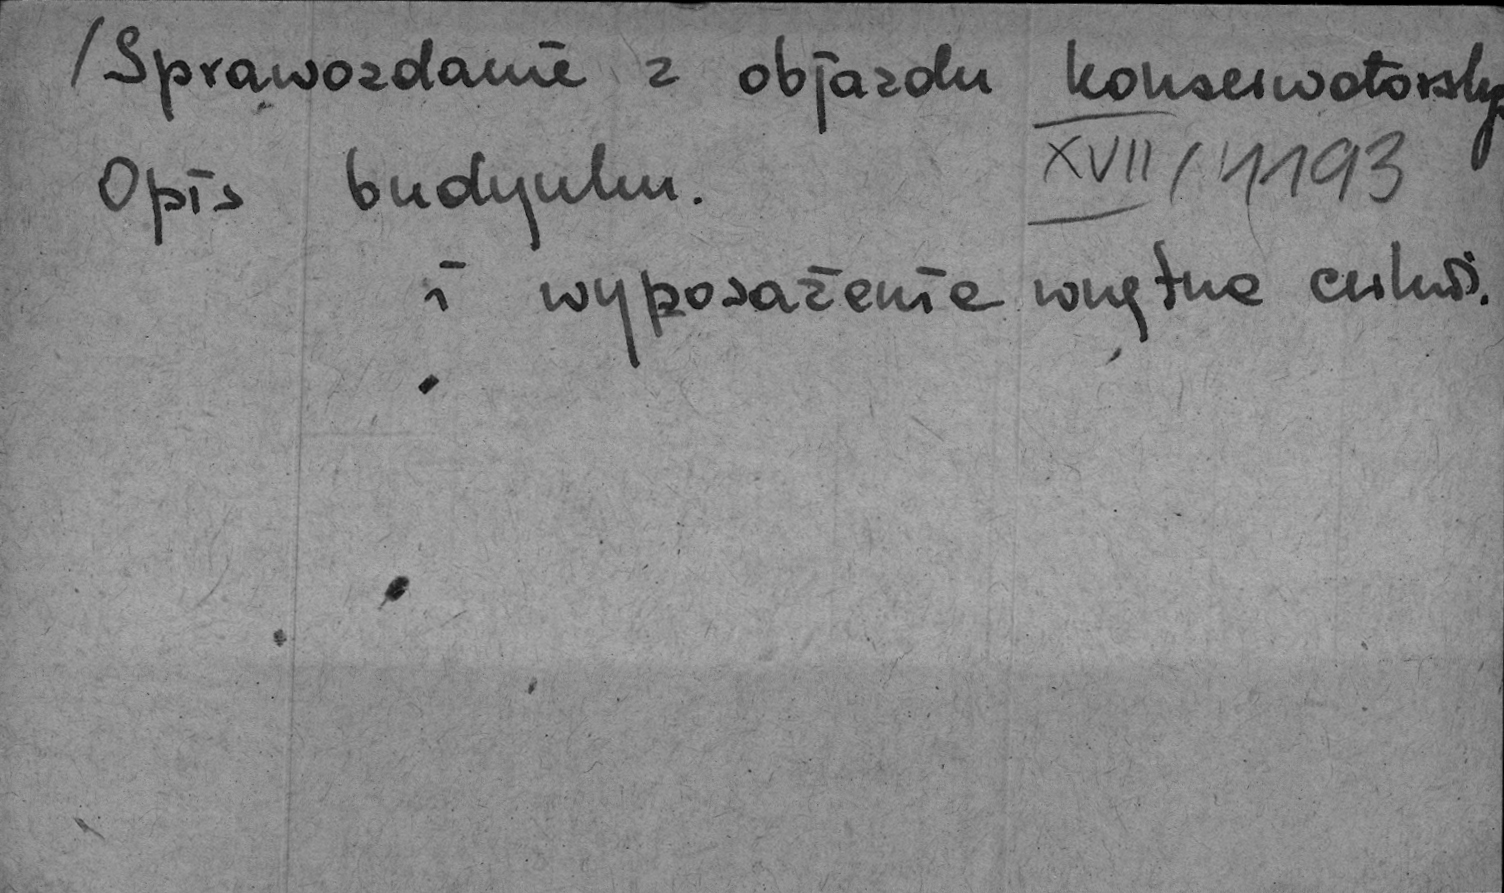 /Sprawozdanie z objazdu konserwatorsk
XVII/4193
Opis budynku.
i wyposażenie wnętrza cerkwi.